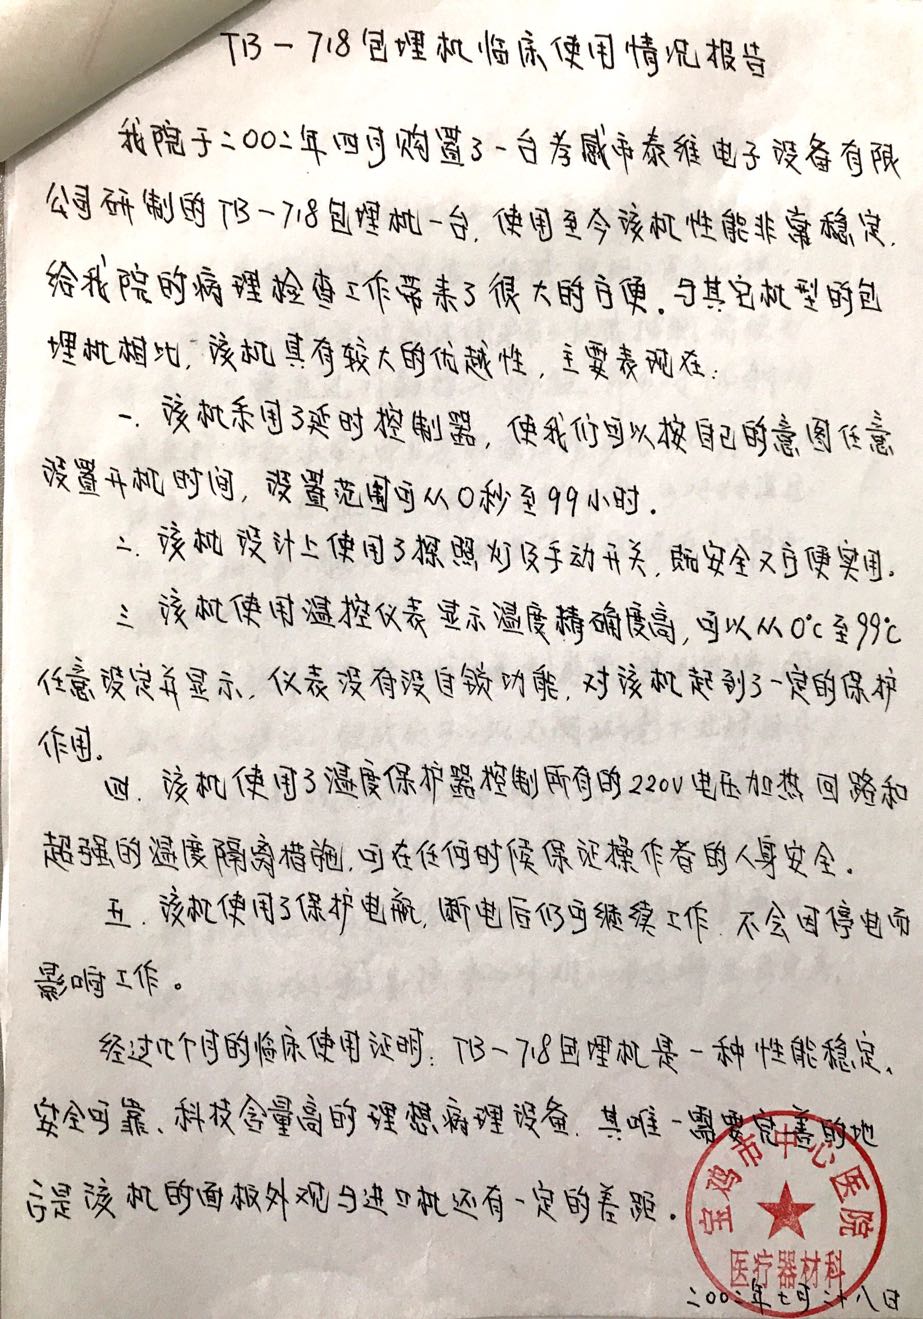 TB-718包埋机临床使用情况报告
我院于二00二年四月购置了一台孝感市泰维电子设备有限
公司研制的TB-718包埋机一台,使用至今该机性能非常稳定,
给我院的病理检查工作带来了很大的方便。与其它机型的包
埋机相比,该机具有较大的优越性,主要表现在:
一、该机采用了延时控制器,使我们可以按自己的意图任意
设置开机时间,设置范围可从0秒至99小时。
二、该机设计上使用了探照灯及手动开关,既安全又方便实用。
三、该机使用温控仪表显示温度精确度高,可以从0℃至99℃
任意设定并显示,仪表没有设自锁功能,对该机起到了一定的保护
作用。
四、该机使用了温度保护器控制所有的220V电压加热回路和
超强的温度隔离措施,可在任何时候保证操作者的人身安全。
五、该机使用了保护电瓶,断电后仍可继续工作,不会因停电而
影响工作。
经过几个月的临床使用证明:TB-718包埋机是一种性能稳定、
安全可靠、科技含量高的理想病理设备,其唯一需要完善的地
方是该机的面板外观与进口机还有一定的差距。
宝鸡市中心医院
医疗器材科
二00二年七月二十八日